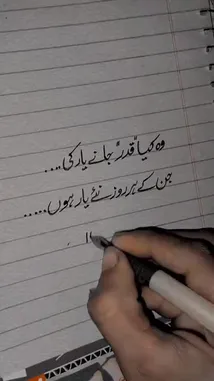 وہ کیا "قدر" جانے یار کی....
جن کے ہر روز نئے یار ہوں.....